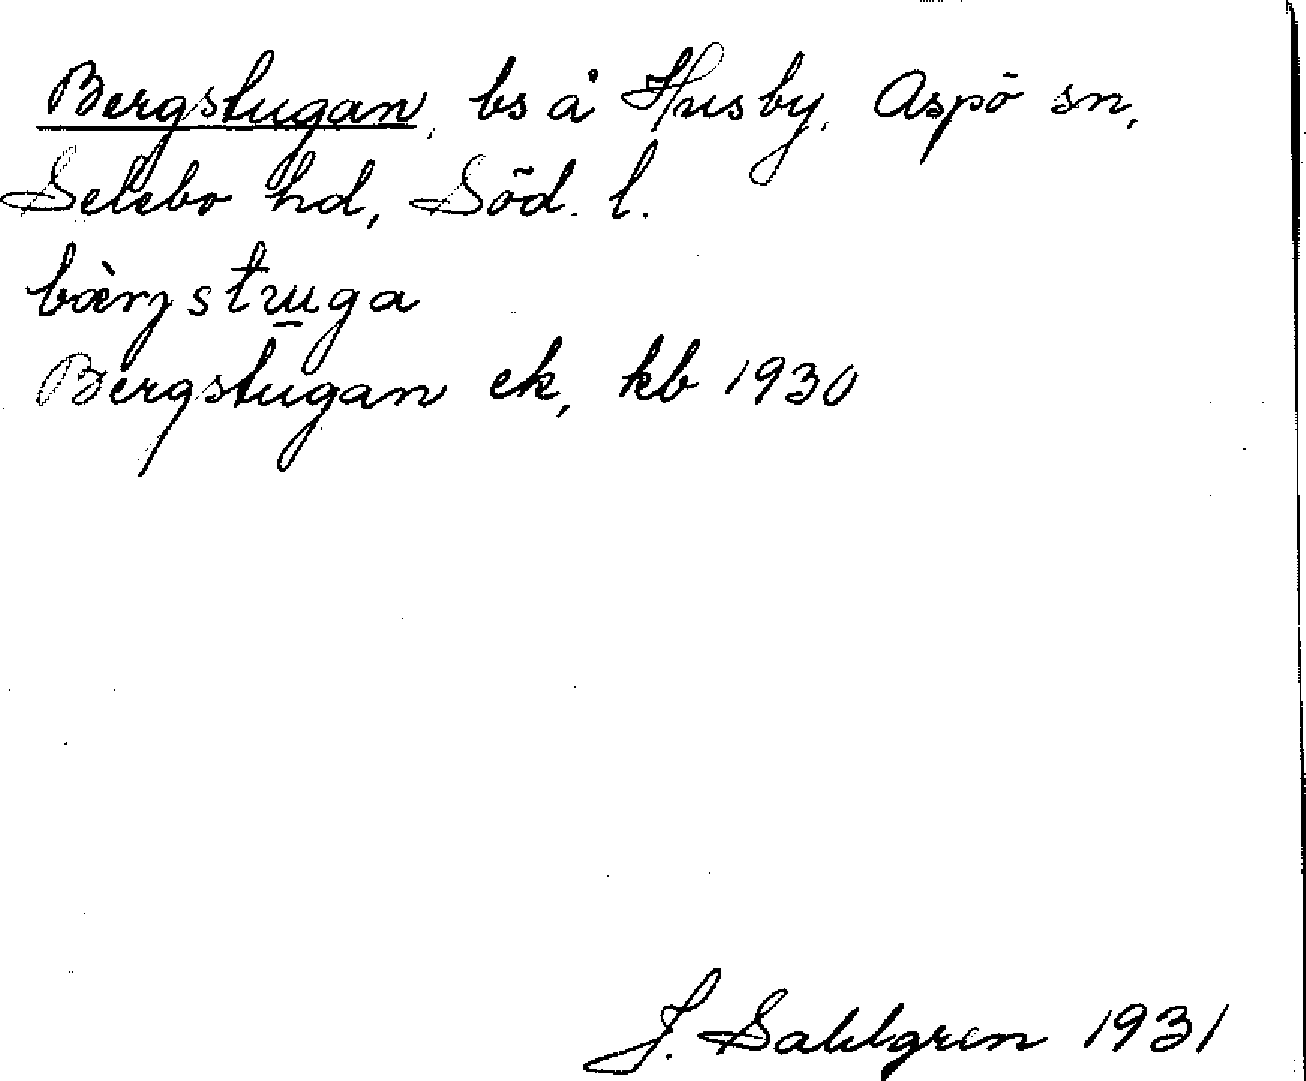 Bergstugan, bs å Husby, Aspö sn,
Selebo hd, Söd. l.
bærjstuga
Bergstugan ek, kb 1930
J. Sahlgren 1931